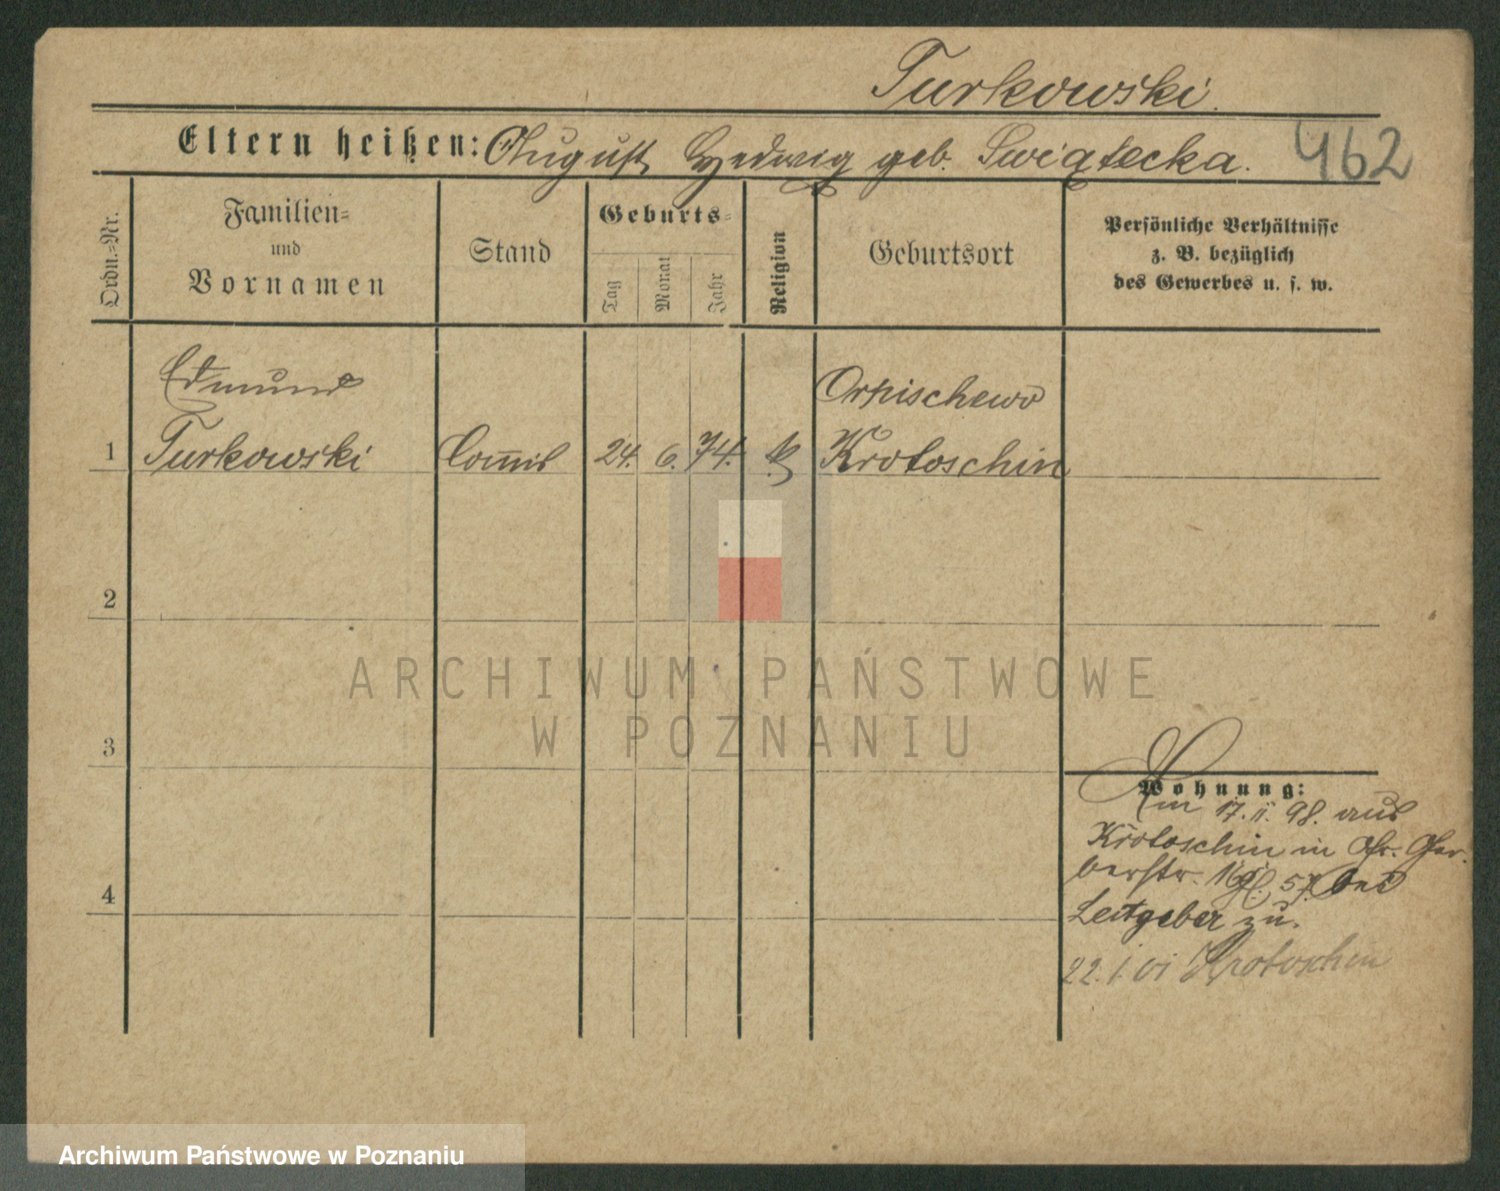 Turkowski.
Eltern heißen: August, Hedwig geb. Swiątecka. 462
Ordn.=Nr.
Familien=
und
Vornamen
Stand
Geburts=
Tag
Monat
Jahr
Religion
Geburtsort
Persönliche Verhältnisse
z. B. bezüglich
des Gewerbes u. s. w.
Edmund Orpischewo
1 Turkowski Commis 24. 6. 74. k. Krotoschin
2
3
4
Wohnung:
Am 17. II. 98. aus
Krotoschin in Gr. Ger-
berstr. 57 bei
Leitgeber zu.
22.1.01 Krotoschin
ARCHIWUM PAŃSTWOWE
W POZNANIU
Archiwum Państwowe w Poznaniu